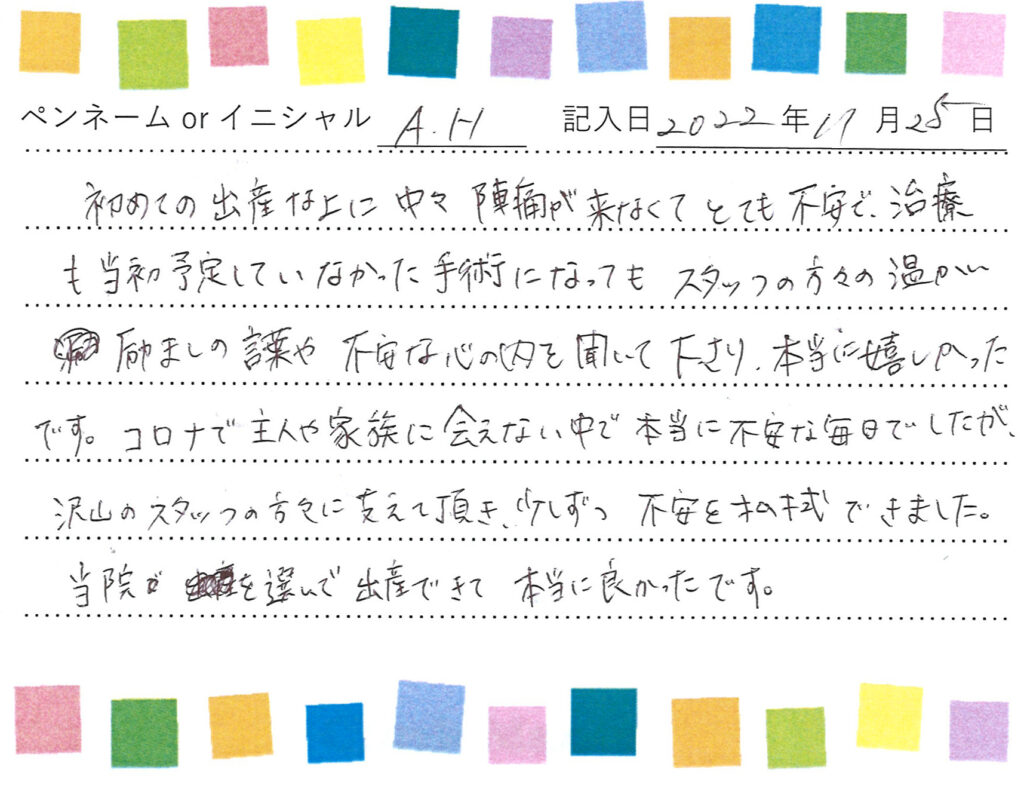 ペンネーム or イニシャル A.H 記入日 2022年11月25日
初めての出産な上に中々陣痛が来なくてとても不安で、治療
も当初予定していなかった手術になってもスタッフの方々の温かい
励ましの言葉や不安な心の内を聞いて下さり、本当に嬉しかった
です。コロナで主人や家族に会えない中で本当に不安な毎日でしたが、
沢山のスタッフの方々に支えて頂き、少しずつ不安を払拭できました。
当院を選んで出産できて本当に良かったです。